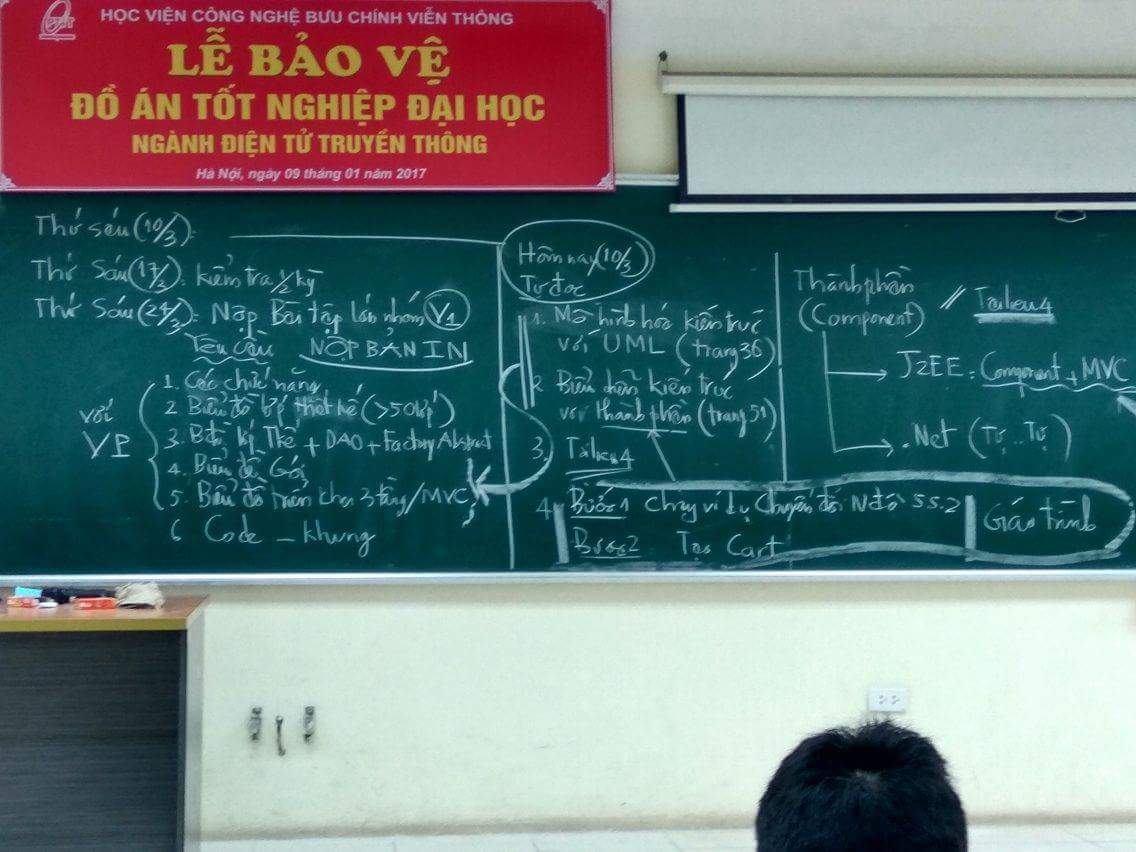 HỌC VIỆN CÔNG NGHỆ BƯU CHÍNH VIỄN THÔNG
LỄ BẢO VỆ
ĐỒ ÁN TỐT NGHIỆP ĐẠI HỌC
NGÀNH ĐIỆN TỬ TRUYỀN THÔNG
Hà Nội, ngày 09 tháng 01 năm 2017
Thứ sáu (10/3):
Thứ Sáu (17/2): kiểm tra 1/2 kỳ
Thứ Sáu (24/3): Nộp Bài tập lớn nhóm V1
Yêu cầu NỘP BẢN IN
với VP
1. Các chức năng
2 Biểu đồ lớp thiết kế (>50 lớp)
3. Thể + DAO + Factory Abstract
4. Biểu đồ Gói
5. Biểu đồ triển khai 3 tầng/MVC
6 Code - khung
Hôm nay (10/3)
Tự đọc
1. Mô hình hóa kiến trúc
với UML (trang 36)
2 Biểu diễn kiến trúc
với thành phần (trang 51)
3. Tài liệu 4
4. Bước 1 Chạy ví dụ chuyển đổi 5.5.2
Bước 2 Tạo Cart
Giáo trình
Thành phần
(Component) // Tài liệu 4
J2EE: Component + MVC
.Net (Tự..Tự)